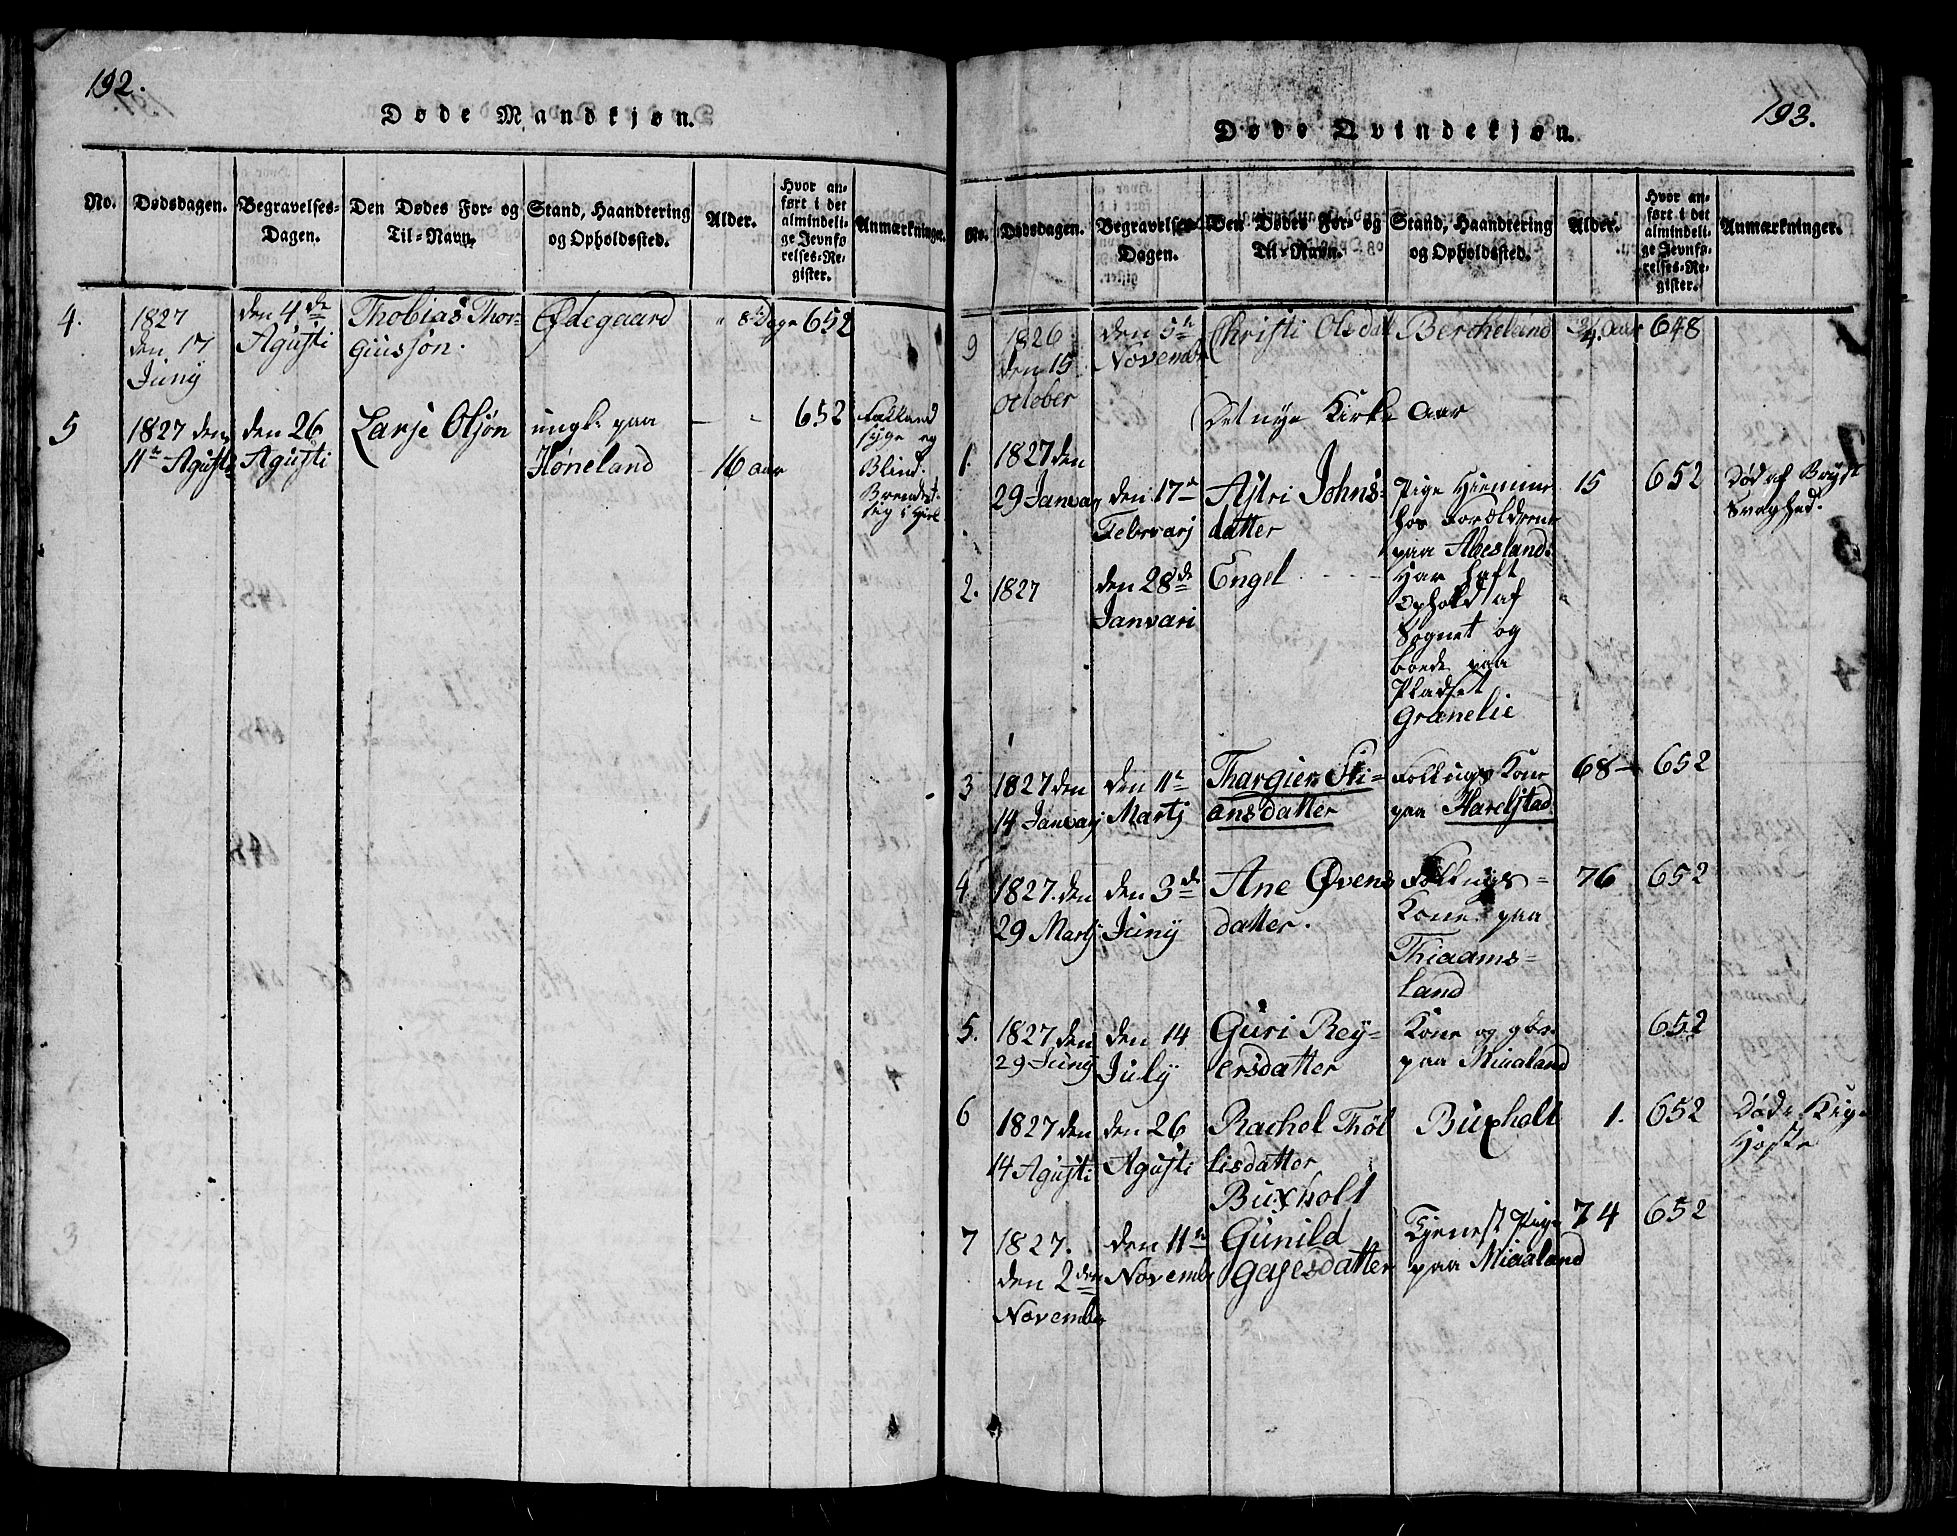 192.
Døde Mandkjøn.
No.
Dødsdagen.
Begravelses-
Dagen.
Den Dødes For- og
Til-Navn.
Stand, Haandtering
og Opholdssted.
Alder.
Hvor an-
ført i det
almindeli-
ge Jevnfø
relses-Re-
gister.
Anmærkninger.
4.
1827
den 17
Juny
den 4de
Agusti
Thobias Thor-
giusson.
Ødegaard
8 Dage
652
5
1827 den
11te Agusti
den 26
Agusti
Larse Olsøn
ungk: paa
Høneland
16 aar
652
Falland
syge og
Blind.
Brendt
sig i
193.
Døde Qvindekjøn.
No.
Dødsdagen.
Begravelses-
Dagen.
Den Dødes For- og
Til-Navn.
Stand, Haandtering
og Opholdssted.
Alder.
Hvor an-
ført i det
almindeli-
ge Jevnfø-
relses-Re-
gister.
Anmærkninger.
9
1826
den 15
October
den 5te
Novembr
Christi Olsdat
Bercheland
aar
648
Det nye Kirke Aar
1.
1827 den
29 Januarj
den 17de
Februarj
Asltri Johns-
datter
Pige Hiemme
hos Forældrene
paa Abesland.
15
652
Død af Bryst
Svaghed.
2.
1827
den 28de
Januari
Engel
Har haft
Ophold af
Sognet og
boede paa
Pladset
Granelie
3
1827 den
14 Januarj
den 11te
Martj
Thargier Sti-
ansdatter
Follugs Kone
paa Harelstad
68
652
4
1827. den
29 Martj
den 3de
Juny
Ane Øvens
datter.
Follugs-
Kone paa
Thiaams-
land
76
652
5.
1827 den
29 Juny
den 14
July
Guri Rey-
ersdatter
Kone og
paa Miaaland
652
6
1827 den
14 Agusti
den 26
Agusti
Rachel Thøl
lisdatter
Buxholt
Buxholt
1.
652
Døde Kig
Hoste
7
1827.
den 2den
November
den 11te
Novembr
Gunild
Gasesdatter
Tjenest Pige
paa Miaaland
74
652